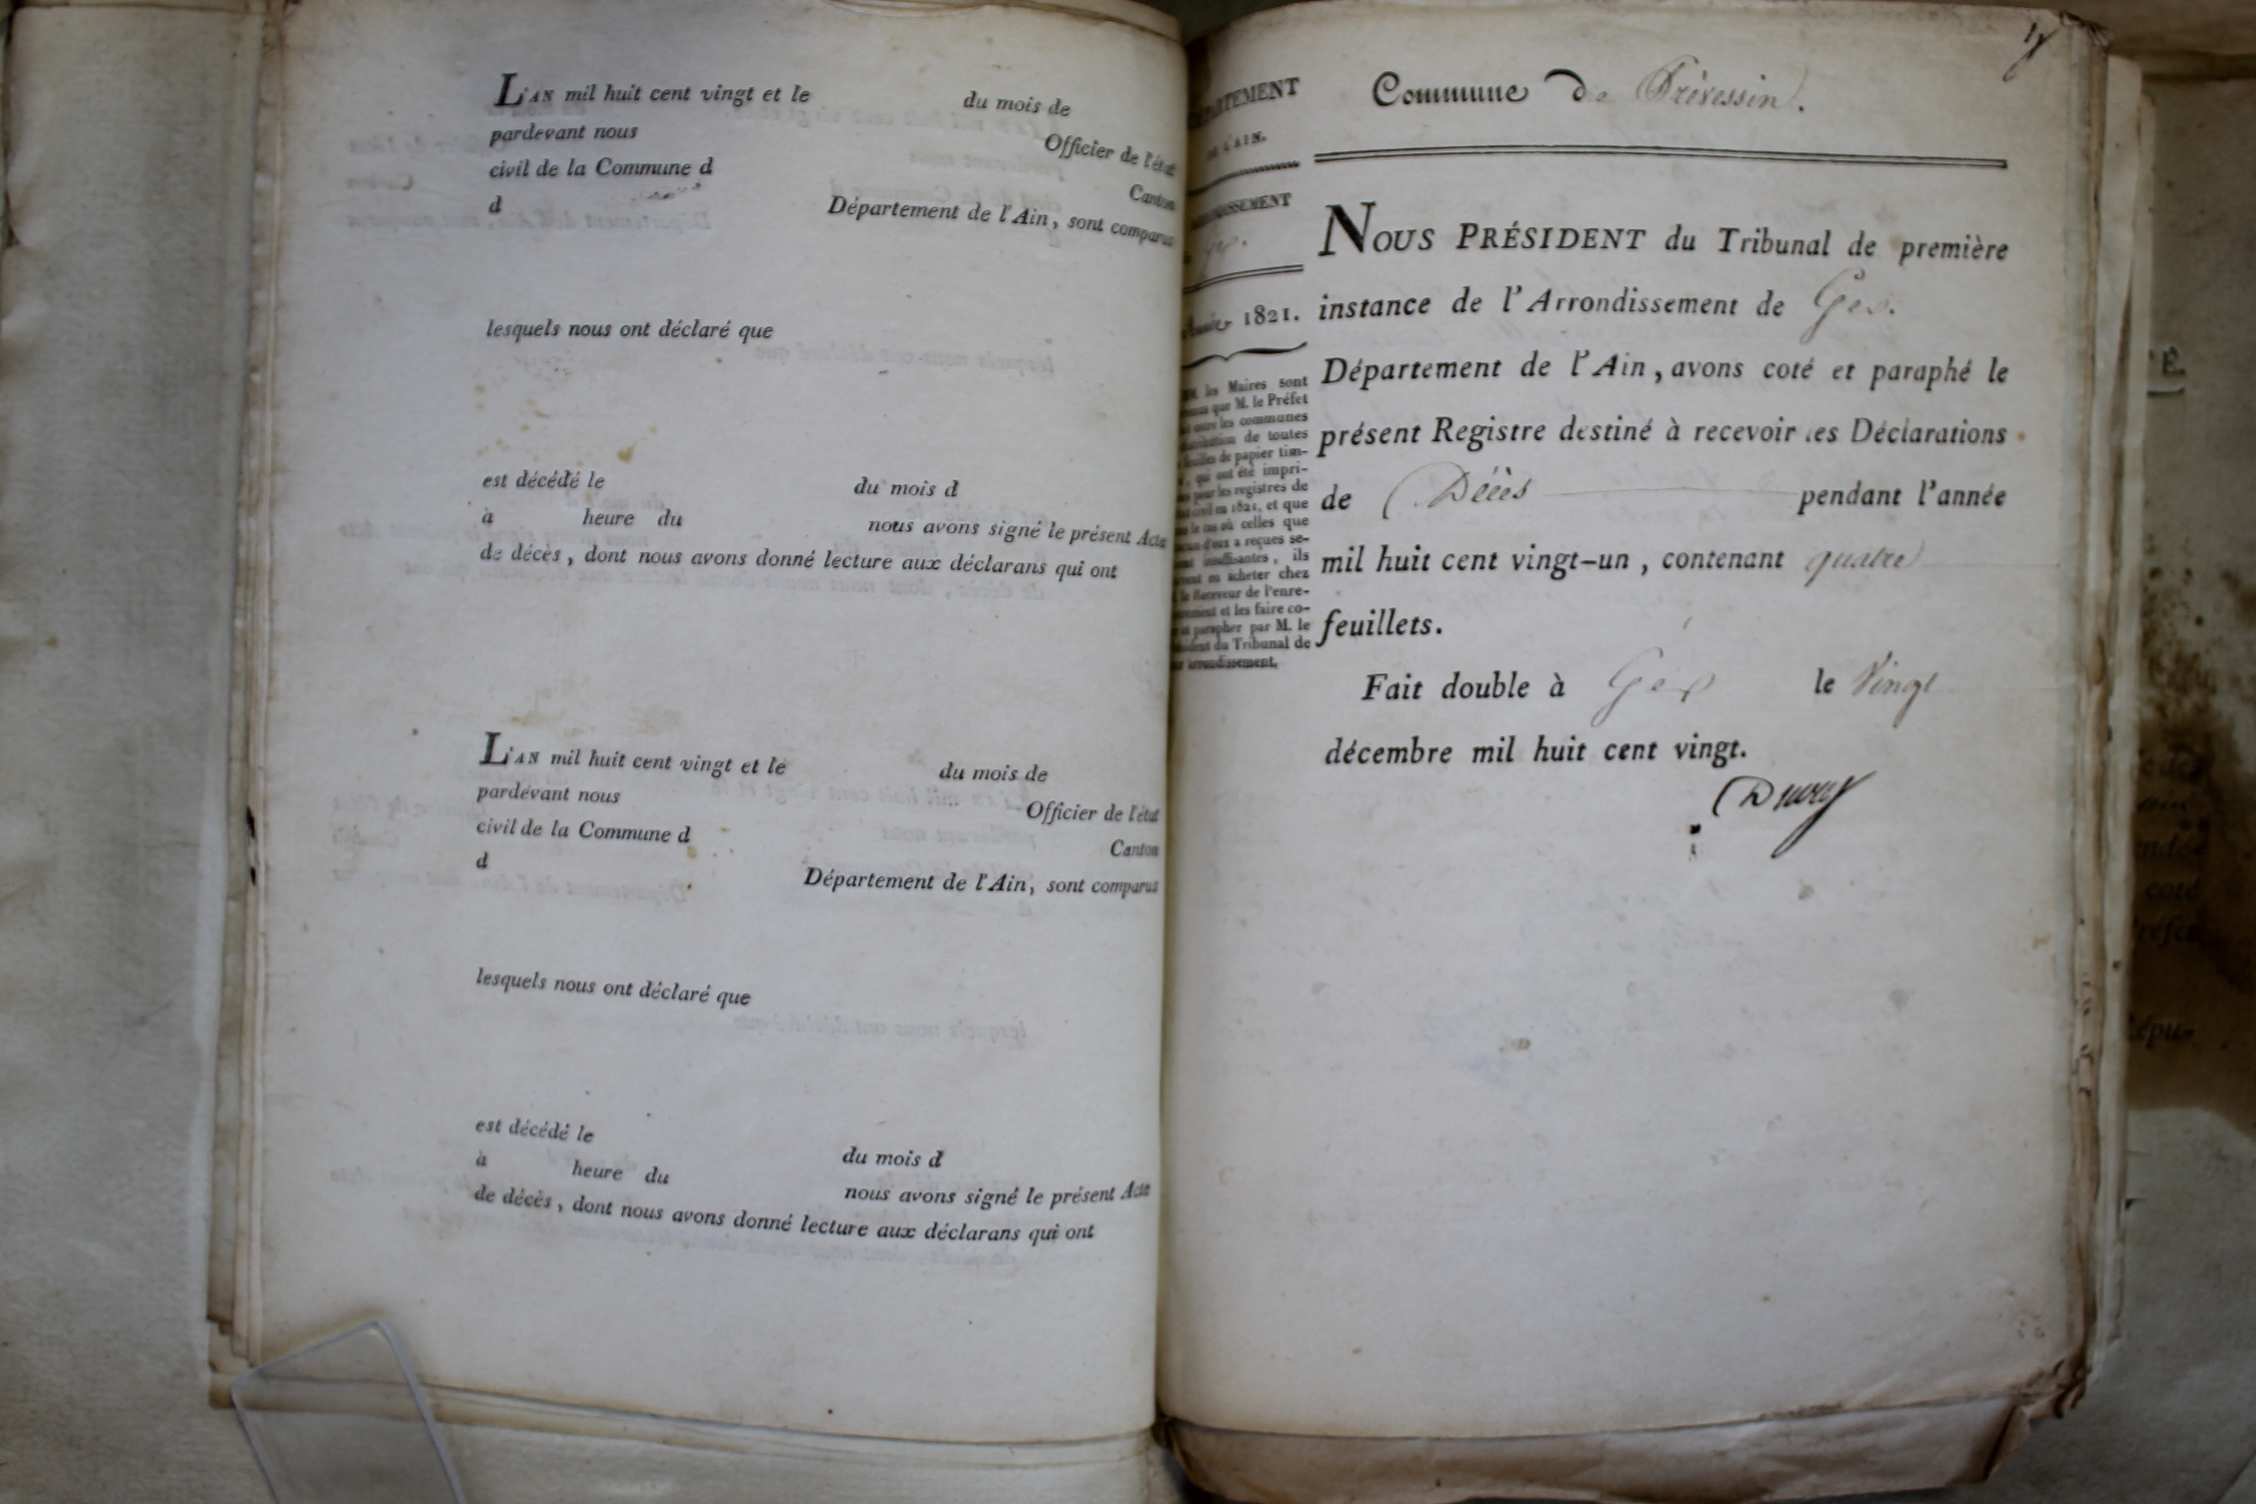 L'AN mil huit cent vingt et le du mois de
pardevant nous Officier de l'état
civil de la Commune d Canton
d Département de l'Ain, sont comparus
lesquels nous ont déclaré que
est décédé le du mois d
à heure du nous avons signé le présent Acte
de décès, dont nous avons donné lecture aux déclarans qui ont
L'AN mil huit cent vingt et le du mois de
pardevant nous Officier de l'état
civil de la Commune d Canton
d Département de l'Ain, sont comparus
lesquels nous ont déclaré que
est décédé le du mois d
à heure du nous avons signé le présent Acte
de décès, dont nous avons donné lecture aux déclarans qui ont
DÉPARTEMENT
DE L'AIN.
ARRONDISSEMENT
Année 1821.
les Maires sont
que M. le Préfet
les communes
de toutes
de papier tim-
qui ont été impri-
pour les registres de
civil en 1821, et que
le cas où celles que
reçues se-
insuffisantes, ils
acheter chez
le Receveur de l'enre-
et les faire co-
parapher par M. le
du Tribunal de
arrondissement.
Commune de Prévessin.
NOUS PRÉSIDENT du Tribunal de première
instance de l'Arrondissement de Gex.
Département de l'Ain, avons coté et paraphé le
présent Registre destiné à recevoir les Déclarations
de Décès pendant l'année
mil huit cent vingt-un, contenant quatre
feuillets.
Fait double à Gex le Vingt
décembre mil huit cent vingt.